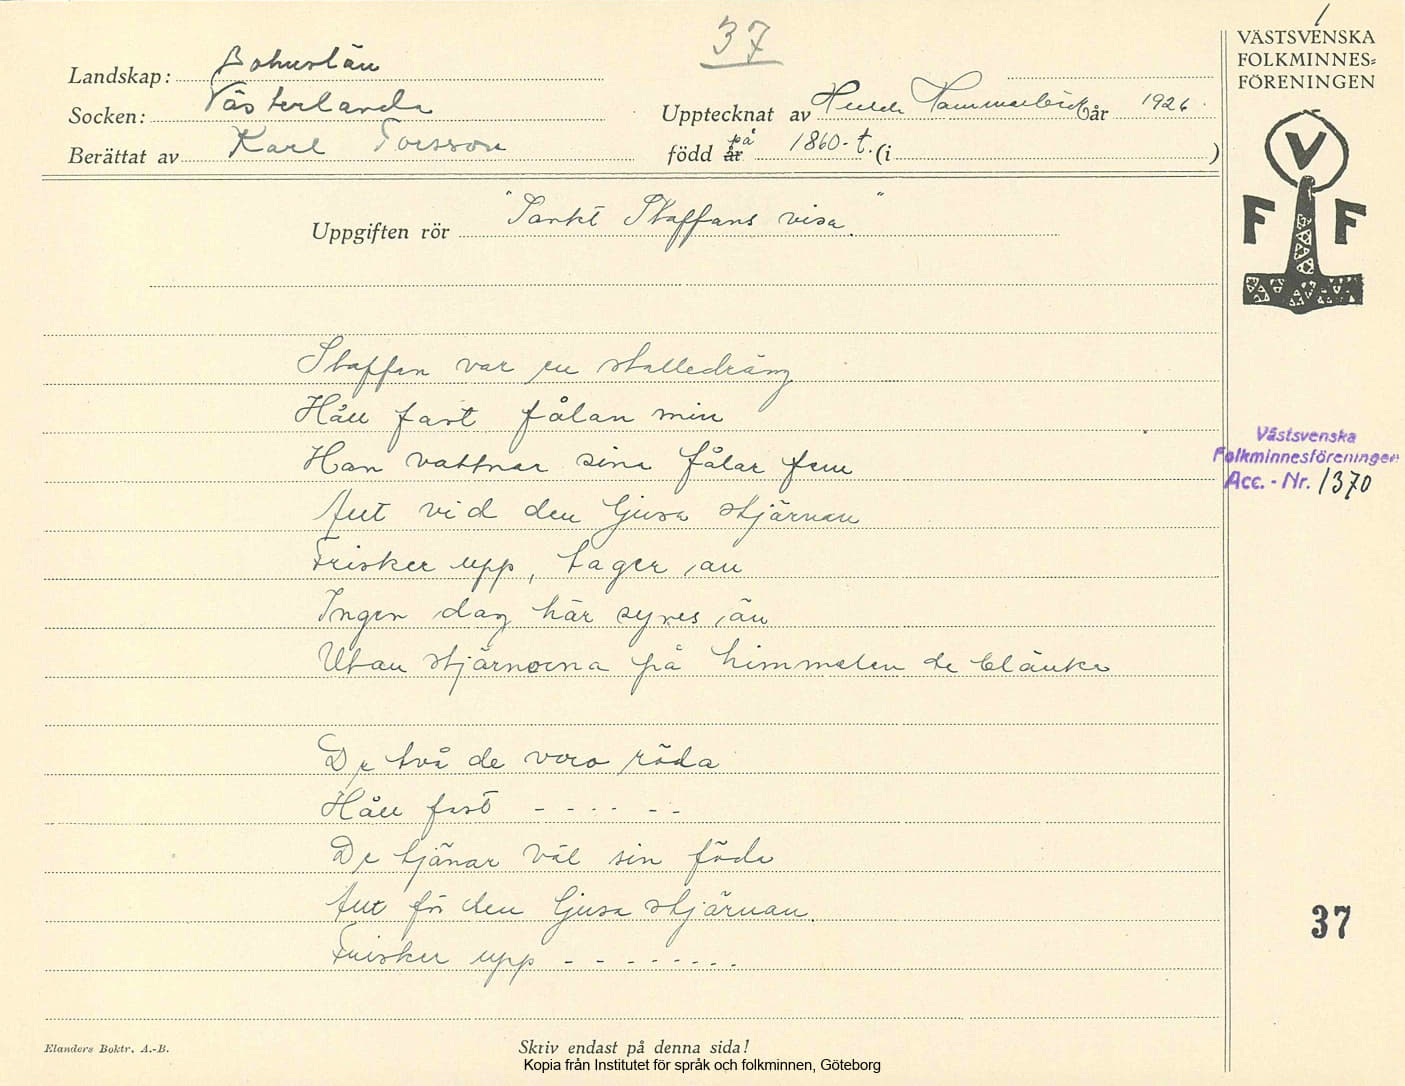 37
1
VÄSTSVENSKA
FOLKMINNES=
FÖRENINGEN
Landskap: Bohuslän
Socken: Västerlanda
Upptecknat av Hulda Hammarbäck år 1926.
Berättat av Karl Torsson
född år på 1860-t. (i )
V
F F
Uppgiften rör "Sankt Staffans visa."
Staffan var en stalledräng
Håll fast fålan min
Han vattnar sina fålar fem
Allt vid den ljusa stjärnan
Frisker upp, tager an
Ingen dag här synes än
Utan stjärnorna på himmelen de blänke
De två de voro röda
Håll fast - - - - - -
De tjänar väl sin föda
Allt för den ljusa stjärnan.
Frisker upp - - - - - - - -
Västsvenska
Folkminnesföreningen
Acc. - Nr. 1370
37
Elanders Boktr. A.-B.
Skriv endast på denna sida!
Kopia från Institutet för språk och folkminnen, Göteborg